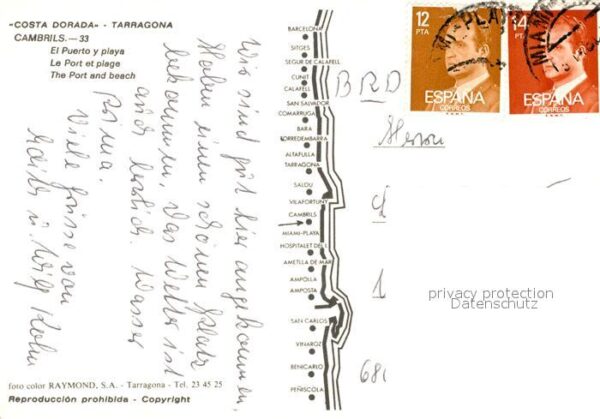 «COSTA DORADA» - TARRAGONA
CAMBRILS.—33
El Puerto y playa
Le Port et plage
The Port and beach
Wir sind gut hier angekommen,
Haben einen schönen Platz
bekommen, das Wetter ist
auch herrlich. Wasser
prima.
Viele Grüsse von
u.
foto color RAYMOND, S.A. - Tarragona - Tel. 23 45 25
Reproducción prohibida - Copyright
BARCELONA
SITGES
SEGUR DE CALAFELL
CUNIT
CALAFELL
SAN SALVADOR
COMARRUGA
BARA
TORREDEMBARRA
ALTAFULLA
TARRAGONA
SALOU
VILAFORTUNY
CAMBRILS
MIAMI-PLAYA
HOSPITALET DEL I.
AMETLLA DE MAR
AMPOLLA
AMPOSTA
SAN CARLOS
VINAROZ
BENICARLO
PEÑISCOLA
12
PTA
ESPAÑA
CORREOS
14
PTA
ESPAÑA
CORREOS
MIAMI-PLAYA
MIAMI
BRD
Herrn
1
68
privacy protection
Datenschutz